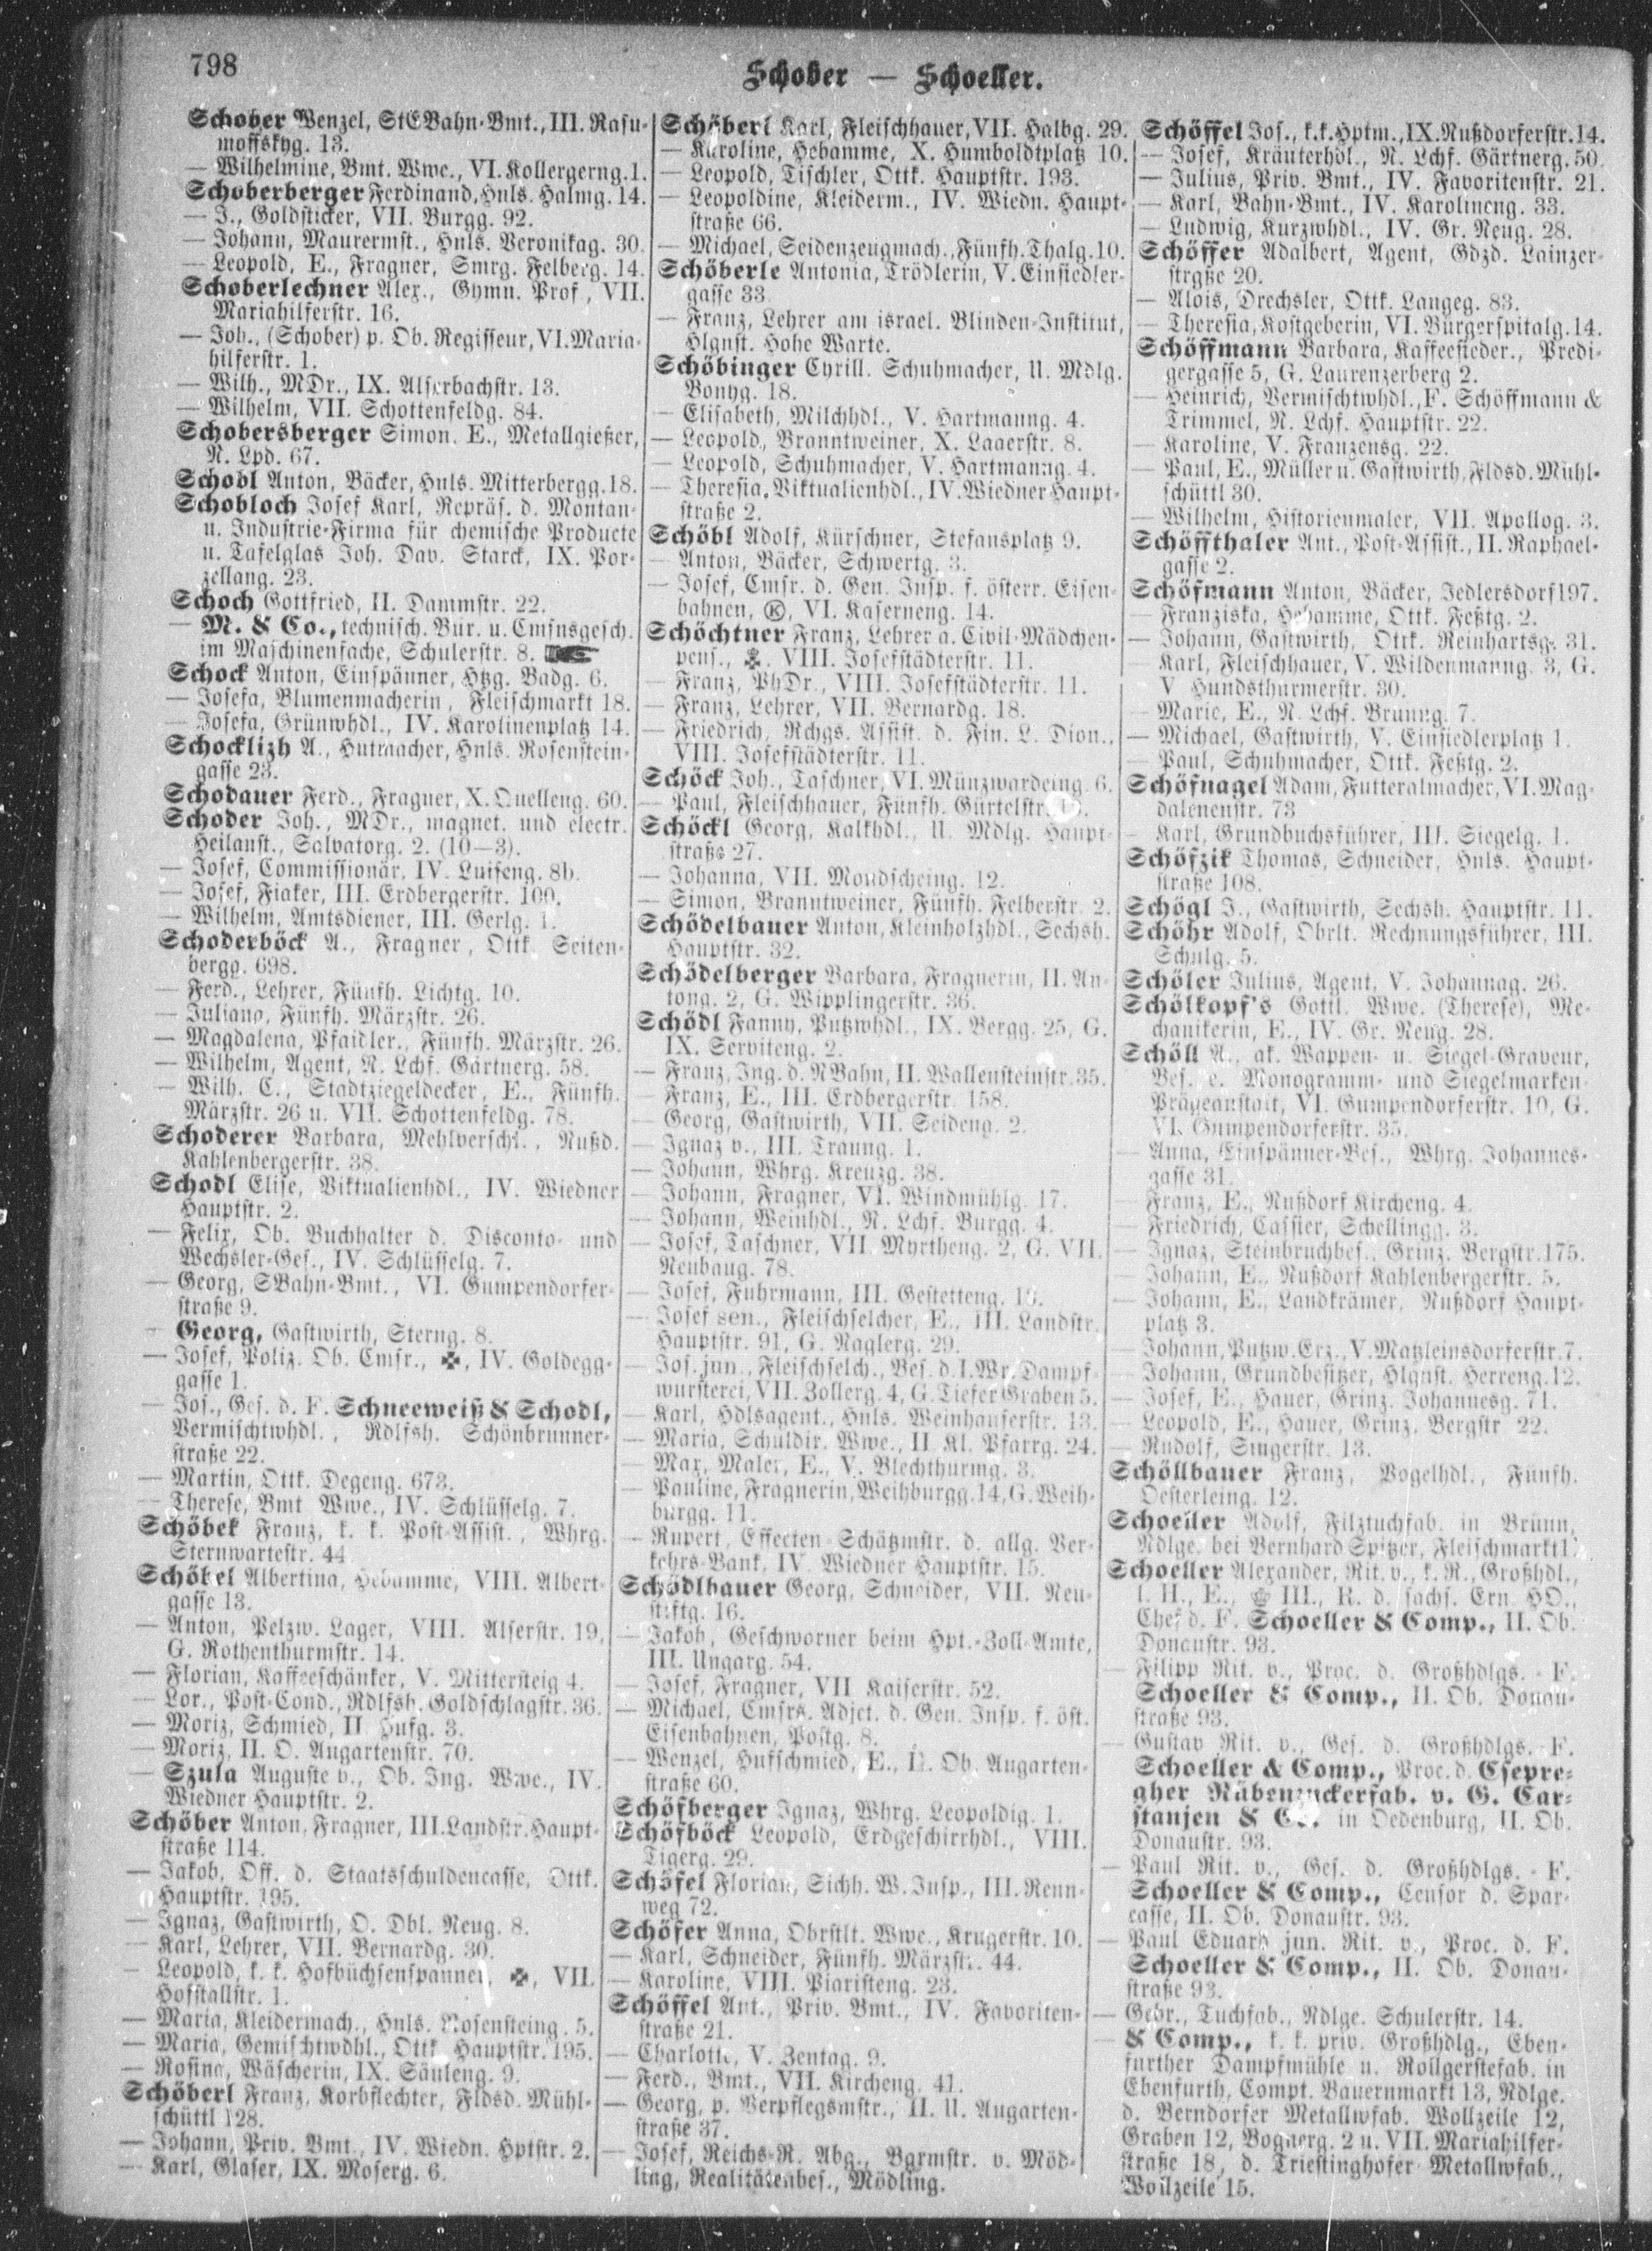 798
Schober — Schoeller.
Schober Wenzel, StEBahn-Bmt., III. Rasu-
moffskyg. 13.
— Wilhelmine, Bmt. Wwe., VI. Kollergerng. 1.
Schoberberger Ferdinand, Hnls. Halmg. 14.
— J., Goldsticker, VII. Burgg. 92.
— Johann, Maurermst., Hnls. Veronikag. 30.
— Leopold, E., Fragner, Smrg. Felberg. 14.
Schoberlechner Alex., Gymn. Prof., VII.
Mariahilferstr. 16.
— Joh., (Schober) p. Ob. Regisseur, VI. Maria-
hilferstr. 1.
— Wilh., MDr., IX. Alserbachstr. 13.
— Wilhelm, VII. Schottenfeldg. 84.
Schobersberger Simon. E., Metallgießer,
N. Lpd. 67.
Schobl Anton, Bäcker, Hnls. Mitterbergg. 18.
Schobloch Josef Karl, Repräs. d. Montan-
u. Industrie-Firma für chemische Producte
u. Tafelglas Joh. Dav. Starck, IX. Por-
zellang. 23.
Schoch Gottfried, II. Dammstr. 22.
— M. & Co., technisch. Bur. u. Cmsnsgesch.
im Maschinenfache, Schulerstr. 8.
Schock Anton, Einspänner, Htzg. Badg. 6.
— Josefa, Blumenmacherin, Fleischmarkt 18.
— Josefa, Grünwhdl., IV. Karolinenplatz 14.
Schocklizh A., Hutmacher, Hnls. Rosenstein-
gasse 23.
Schodauer Ferd., Fragner, X. Quelleng. 60.
Schoder Joh., MDr., magnet. und electr.
Heilanst., Salvatorg. 2. (10—3).
— Josef, Commissionär, IV. Luiseng. 8b.
— Josef, Fiaker, III. Erdbergerstr. 100.
— Wilhelm, Amtsdiener, III. Gerlg. 1.
Schoderböck A., Fragner, Ottk. Seiten-
bergg. 698.
— Ferd., Lehrer, Fünfh. Lichtg. 10.
— Juliana, Fünfh. Märzstr. 26.
— Magdalena, Pfaidler., Fünfh. Märzstr. 26.
— Wilhelm, Agent, N. Lchf. Gärtnerg. 58.
— Wilh. C., Stadtziegeldecker, E., Fünfh.
Märzstr. 26 u. VII. Schottenfeldg. 78.
Schoderer Barbara, Mehlverschl., Nußd.
Kahlenbergerstr. 38.
Schodl Elise, Viktualienhdl., IV. Wiedner
Hauptstr. 2.
— Felix, Ob. Buchhalter d. Disconto- und
Wechsler-Ges., IV. Schlüsselg. 7.
— Georg, SBahn-Bmt., VI. Gumpendorfer-
straße 9.
— Georg, Gastwirth, Sterng. 8.
— Josef, Poliz. Ob. Cmsr., ✠, IV. Goldegg-
gasse 1.
— Jos., Ges. d. F. Schneeweiß & Schodl,
Vermischtwhdl., Rdlfsh. Schönbrunner-
straße 22.
— Martin, Ottk. Degeng. 673.
— Therese, Bmt. Wwe., IV. Schlüsselg. 7.
Schöbek Franz, k. k. Post-Assist., Whrg.
Sternwartestr. 44
Schöbel Albertina, Hebamme, VIII. Albert-
gasse 13.
— Anton, Pelzw. Lager, VIII. Alserstr. 19,
G. Rothenthurmstr. 14.
— Florian, Kaffeeschänker, V. Mittersteig 4.
— Lor., Post-Cond., Rdlfsh. Goldschlagstr. 36.
— Moriz, Schmied, II. Hufg. 3.
— Moriz, II. O. Augartenstr. 70.
— Szula Auguste v., Ob. Ing. Wwe., IV.
Wiedner Hauptstr. 2.
Schöber Anton, Fragner, III. Landstr. Haupt-
straße 114.
— Jakob, Off. d. Staatsschuldencasse, Ottk.
Hauptstr. 195.
— Ignaz, Gastwirth, O. Dbl. Neug. 8.
— Karl, Lehrer, VII. Bernardg. 30.
— Leopold, k. k. Hofbüchsenspanner, ✠, VII.
Hofstallstr. 1.
— Maria, Kleidermach., Hnls. Rosensteing. 5.
— Maria, Gemischtwdhl., Ottk. Hauptstr. 195.
— Rosina, Wäscherin, IX. Säuleng. 9.
Schöberl Franz, Korbflechter, Fldsd. Mühl-
schüttl 128.
— Johann, Priv. Bmt., IV. Wiedn. Hptstr. 2.
— Karl, Glaser, IX. Moserg. 6.
Schöberl Karl, Fleischhauer, VII. Halbg. 29.
— Karoline, Hebamme, X. Humboldtplatz 10.
— Leopold, Tischler, Ottk. Hauptstr. 193.
— Leopoldine, Kleiderm., IV. Wiedn. Haupt-
straße 66.
— Michael, Seidenzeugmach., Fünfh. Thalg. 10.
Schöberle Antonia, Trödlerin, V. Einsiedler-
gasse 33
— Franz, Lehrer am israel. Blinden-Institut,
Hlgnst. Hohe Warte.
Schöbinger Cyrill. Schuhmacher, U. Mdlg.
Bonyg. 18.
— Elisabeth, Milchhdl., V. Hartmanng. 4.
— Leopold, Branntweiner, X. Laaerstr. 8.
— Leopold, Schuhmacher, V. Hartmanng. 4.
— Theresia, Viktualienhdl., IV. Wiedner Haupt-
straße 2.
Schöbl Adolf, Kürschner, Stefansplatz 9.
— Anton, Bäcker, Schwertg. 3.
— Josef, Cmsr. d. Gen. Insp. f. österr. Eisen-
bahnen, Ⓚ, VI. Kaserneng. 14.
Schöchtner Franz, Lehrer a. Civil-Mädchen-
pens., VIII. Josefstädterstr. 11.
— Franz, PhDr., VIII. Josefstädterstr. 11.
— Franz, Lehrer, VII. Bernardg. 18.
— Friedrich, Rchgs. Assist. d. Fin. L. Dion.,
VIII. Josefstädterstr. 11.
Schöck Joh., Taschner, VI. Münzwardeing. 6.
— Paul, Fleischhauer, Fünfh. Gürtelstr.
Schöckl Georg, Kalkhdl., U. Mdlg. Haupt-
straße 27.
— Johanna, VII. Mondscheing. 12.
— Simon, Branntweiner, Fünfh. Felberstr. 2.
Schödelbauer Anton, Kleinholzhdl., Sechsh.
Hauptstr. 32.
Schödelberger Barbara, Fragnerin, II. An-
tong. 2, G. Wipplingerstr. 36.
Schödl Fanny, Putzwhdl., IX. Bergg. 25, G.
IX. Serviteng. 2.
— Franz, Ing. d. NBahn, II. Wallensteinstr. 35.
— Franz, E., III. Erdbergerstr. 158.
— Georg, Gastwirth, VII. Seideng. 2.
— Ignaz v., III. Traung. 1.
— Johann, Whrg. Kreuzg. 38.
— Johann, Fragner, VI. Windmühlg. 17.
— Johann, Weinhdl., N. Lchf. Burgg. 4.
— Josef, Taschner, VII. Myrtheng. 2, G. VII.
Neubaug. 78.
— Josef, Fuhrmann, III. Gestetteng.
— Josef sen., Fleischselcher, E., III. Landstr.
Hauptstr. 91, G. Naglerg. 29.
— Jos. jun., Fleischselch., Bes. d. I. Wr. Dampf-
wursterei, VII. Zollerg. 4, G. Tiefer Graben 5.
— Karl, Hdlsagent., Hnls. Weinhauserstr. 13.
— Maria, Schuldir. Wwe., II. Kl. Pfarrg. 24.
— Max, Maler, E., V. Blechthurmg. 3.
— Pauline, Fragnerin, Weihburgg. 14, G. Weih-
burgg. 11.
— Rupert, Effecten-Schätzmstr. d. allg. Ver-
kehrs-Bank, IV. Wiedner Hauptstr. 15.
Schödlbauer Georg, Schneider, VII. Neu-
stiftg. 16.
— Jakob, Geschworner beim Hpt.-Zoll-Amte,
III. Ungarg. 54.
— Josef, Fragner, VII Kaiserstr. 52.
— Michael, Cmsrs. Adjct. d. Gen. Insp. f. öst.
Eisenbahnen, Postg. 8.
— Wenzel, Hufschmied, E., II. Ob. Augarten-
straße 60.
Schöfberger Ignaz, Whrg. Leopoldig. 1.
Schöfböck Leopold, Erdgeschirrhdl., VIII.
Tigerg. 29.
Schöfel Florian, Sichh. W. Insp., III. Renn-
weg 72.
Schöfer Anna, Obrstlt. Wwe., Krugerstr. 10.
— Karl, Schneider, Fünfh. Märzstr. 44.
— Karoline, VIII. Piaristeng. 23.
Schöffel Ant., Priv. Bmt., IV. Favoriten-
straße 21.
— Charlotte, V. Zentag. 9.
— Ferd., Bmt., VII. Kircheng. 41.
— Georg, p. Verpflegsmstr., II. U. Augarten-
straße 37.
— Josef, Reichs-R. Abg., Bgrmstr. v. Möd-
ling, Realitätenbes., Mödling.
Schöffel Jos., k.k. Hptm., IX. Nußdorferstr. 14.
— Josef, Kräuterhdl., N. Lchf. Gärtnerg. 50.
— Julius, Priv. Bmt., IV. Favoritenstr. 21.
— Karl, Bahn-Bmt., IV. Karolineng. 33.
— Ludwig, Kurzwhdl., IV. Gr. Neug. 28.
Schöffer Adalbert, Agent, Gdzd. Lainzer-
straße 20.
— Alois, Drechsler, Ottk. Langeg. 83.
— Theresia, Kostgeberin, VI. Bürgerspitalg. 14.
Schöffmann Barbara, Kaffeesieder., Predi-
gergasse 5, G. Laurenzerberg 2.
— Heinrich, Vermischtwhdl., F. Schöffmann &
Trimmel, N. Lchf. Hauptstr. 22.
— Karoline, V. Franzensg. 22.
— Paul, E., Müller u. Gastwirth, Fldsd. Mühl-
schüttl 30.
— Wilhelm, Historienmaler, VII. Apollog. 3.
Schöffthaler Ant., Post-Assist., II. Raphael-
gasse 2.
Schöfmann Anton, Bäcker, Jedlersdorf 197.
— Franziska, Hebamme, Ottk. Feßtg. 2.
— Johann, Gastwirth, Ottk. Reinhartsg. 31.
— Karl, Fleischhauer, V. Wildenmanng. 3, G.
V. Hundsthurmerstr. 30.
— Marie, E., N. Lchf. Brunng. 7.
— Michael, Gastwirth, V. Einsiedlerplatz 1.
— Paul, Schuhmacher, Ottk. Feßtg. 2.
Schöfnagel Adam, Futteralmacher, VI. Mag-
dalenenstr. 73
— Karl, Grundbuchsführer, III. Siegelg. 1.
Schöfzik Thomas, Schneider, Hnls. Haupt-
straße 108.
Schögl J., Gastwirth, Sechsh. Hauptstr. 11.
Schöhr Adolf, Obrlt. Rechnungsführer, III.
Schulg. 5.
Schöler Julius, Agent, V. Johannag. 26.
Schölkopf's Gottl. Wwe. (Therese), Me-
chanikerin, E., IV. Gr. Neug. 28.
Schöll A., ak. Wappen- u. Siegel-Graveur,
Bes. e. Monogramm- und Siegelmarken-
Prägeanstalt, VI. Gumpendorferstr. 10, G.
VI. Gumpendorferstr. 35.
— Anna, Einspänner-Bes., Whrg. Johannes-
gasse 31.
— Franz, E., Nußdorf Kircheng. 4.
— Friedrich, Cassier, Schellingg. 3.
— Ignaz, Steinbruchbes., Grinz. Bergstr. 175.
— Johann, E., Nußdorf Kahlenbergerstr. 5.
— Johann, E., Landkrämer, Nußdorf Haupt-
platz 3.
— Johann, Putzw. Erz., V. Matzleinsdorferstr. 7.
— Johann, Grundbesitzer, Hlgnst. Herreng. 12.
— Josef, E., Hauer, Grinz. Johannesg. 71.
— Leopold, E., Hauer, Grinz. Bergstr. 22.
— Rudolf, Singerstr. 13.
Schöllbauer Franz, Vogelhdl., Fünfh.
Oesterleing. 12.
Schoeller Adolf, Filztuchfab. in Brünn,
Ndlge. bei Bernhard Spitzer, Fleischmarkt
Schoeller Alexander, Rit. v., k. R., Großhdl.,
l. H., E., III., R. d. sachs. Ern. HO.,
Chef d. F. Schoeller & Comp., II. Ob.
Donaustr. 93.
— Filipp Rit. v., Proc. d. Großhdlgs.-F.
Schoeller & Comp., II. Ob. Donau-
straße 93.
— Gustav Rit. v., Ges. d. Großhdlgs.-F.
Schoeller & Comp., Proc. d. Csepre-
gher Rübenzuckerfab. v. G. Car-
stanjen & Co. in Oedenburg, II. Ob.
Donaustr. 93.
— Paul Rit. v., Ges. d. Großhdlgs.-F.
Schoeller & Comp., Censor d. Spar-
casse, II. Ob. Donaustr. 93.
— Paul Eduard jun. Rit. v., Proc. d. F.
Schoeller & Comp., II. Ob. Donau-
straße 93.
— Gebr., Tuchfab., Ndlge. Schulerstr. 14.
— & Comp., k. k. priv. Großhdlg., Eben-
further Dampfmühle u. Rollgerstefab. in
Ebenfurth, Compt. Bauernmarkt 13, Ndlge.
d. Berndorfer Metallwfab. Wollzeile 12,
Graben 12, Bognerg. 2 u. VII. Mariahilfer-
straße 18, d. Triestinghofer Metallwfab.,
Wollzeile 15.